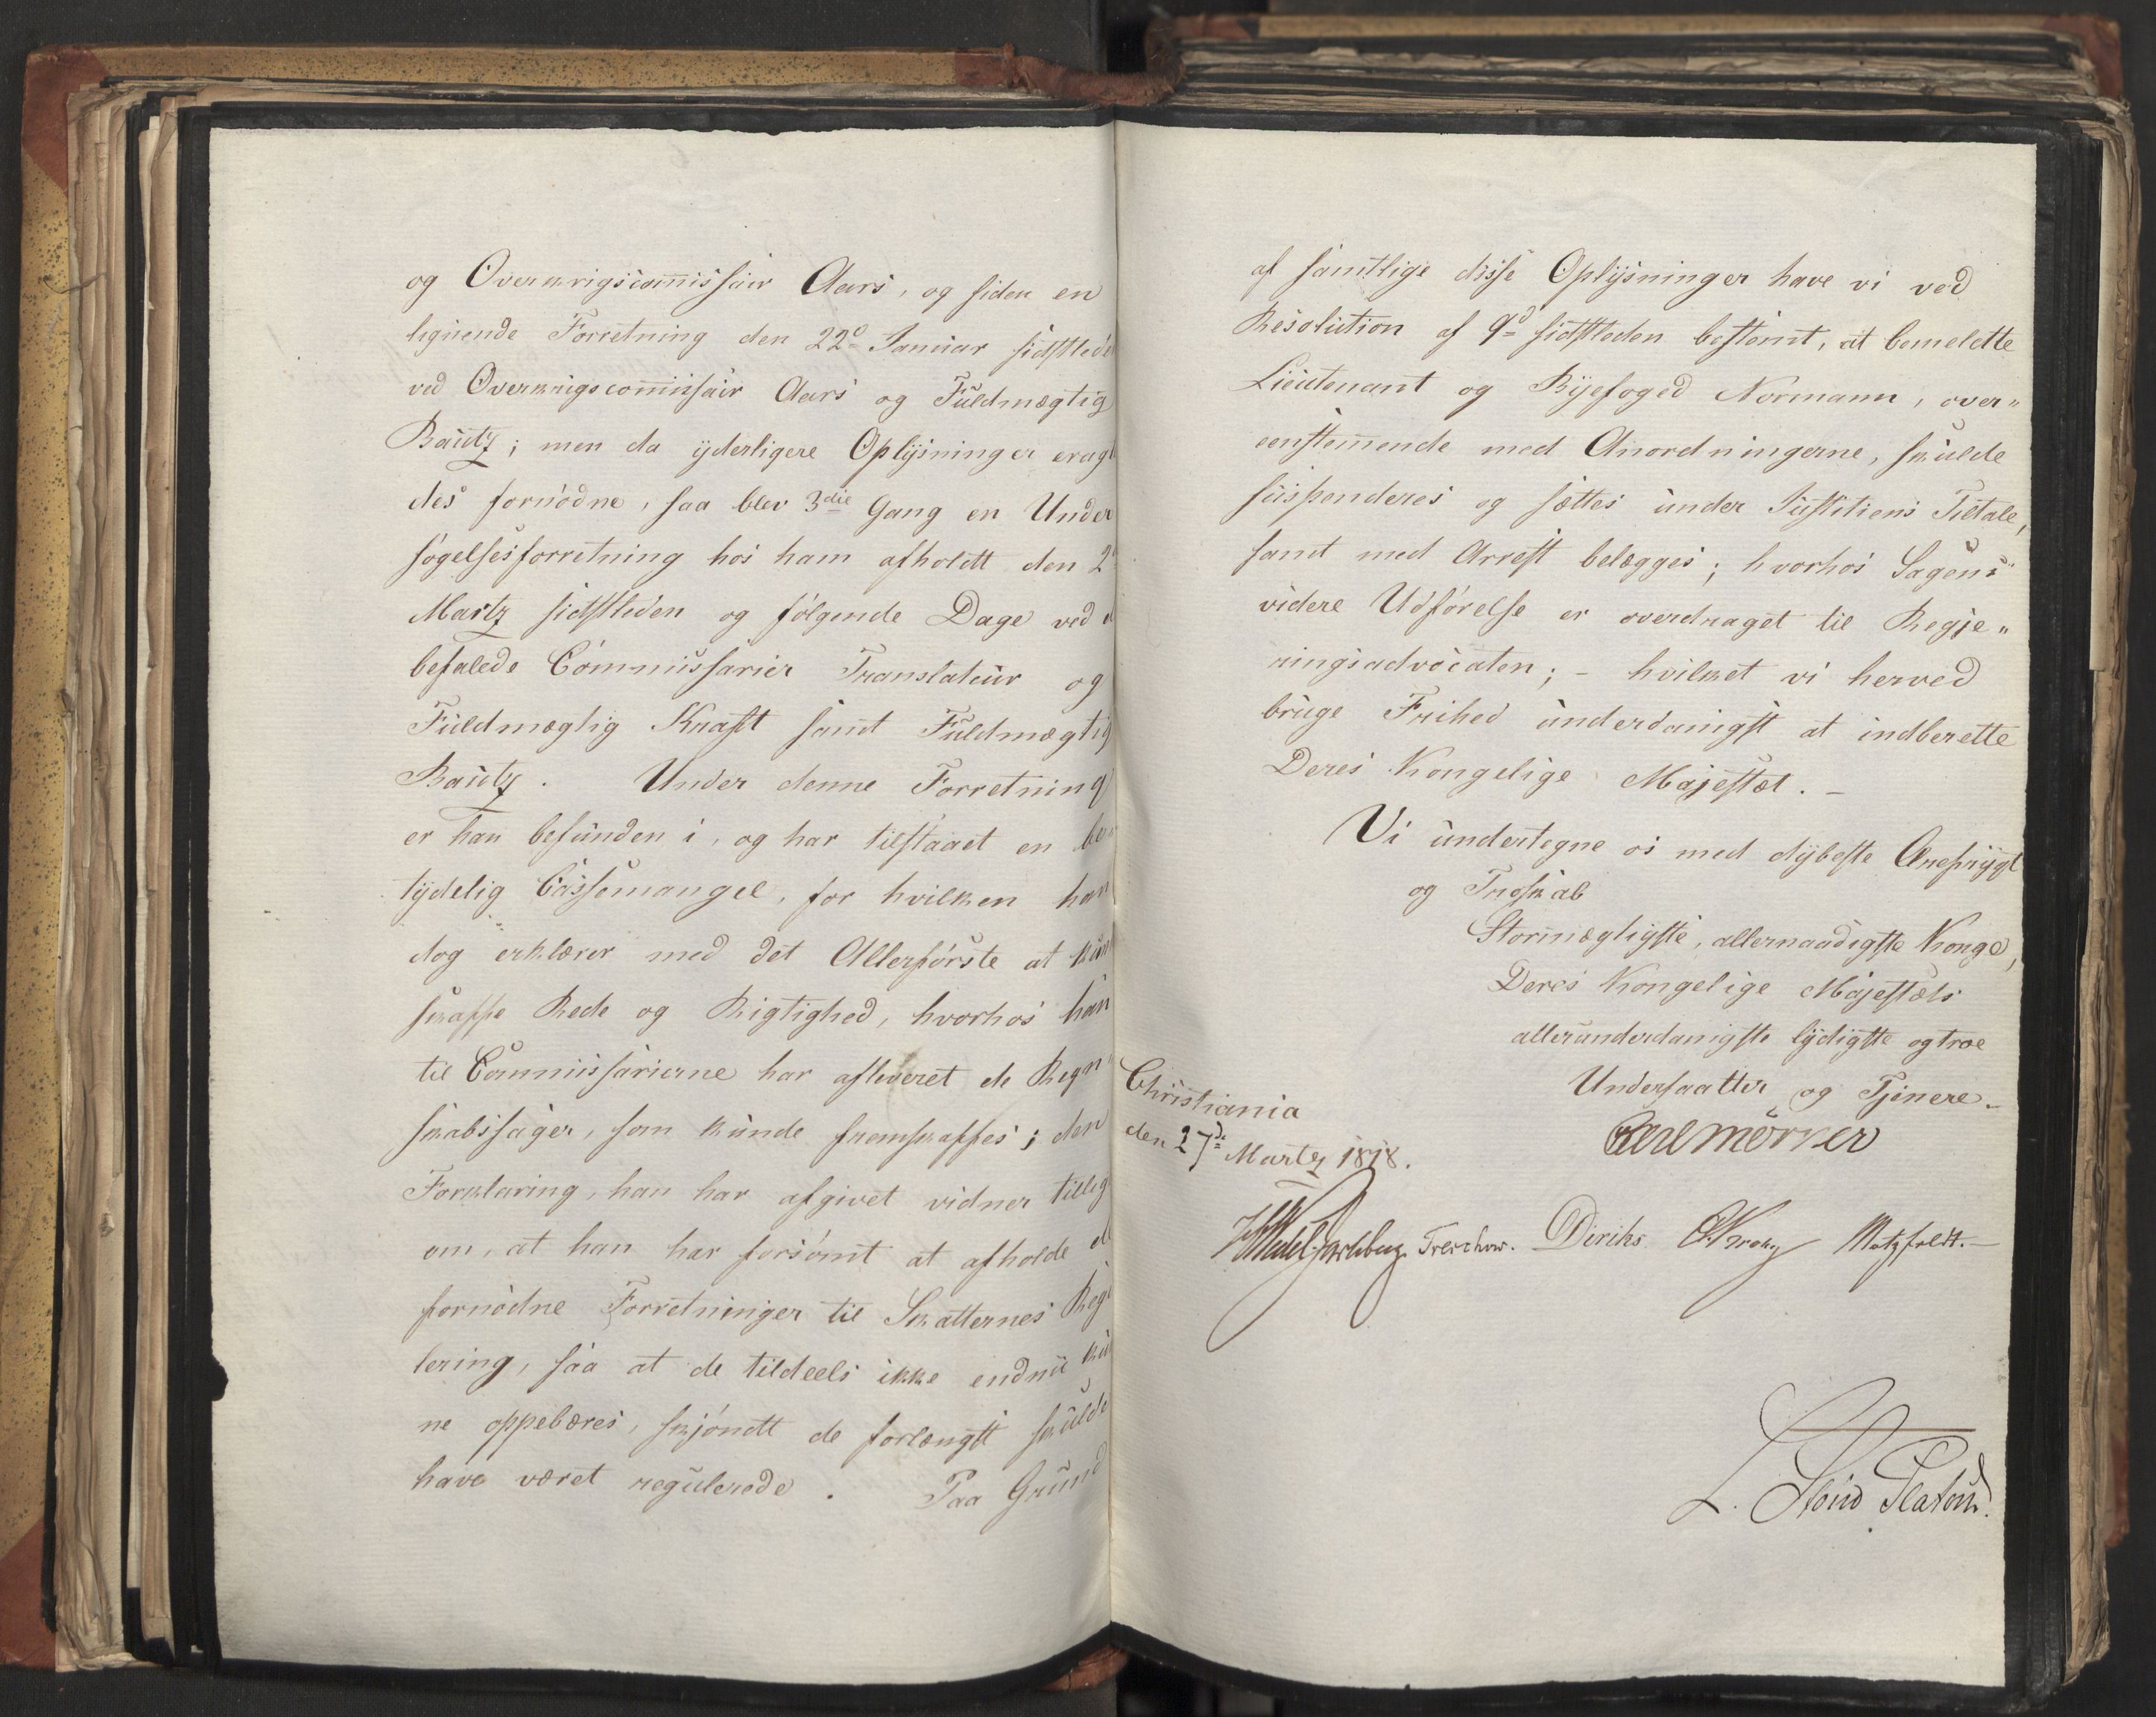 og Overkrigscom̅issair Aars, og siden en
lignende Forretning den 22d Januar sidstlede
ved Overkrigscom̅issair Aars og Fuldmægtig
Bautz; men da yderligere Oplysninger eragt
des fornødne, saa blev 3die Gang en Under
søgelsesforretning hos ham afholdt den 2
Martz sidstleden og følgende Dage ved
befalede Commissarier Translateur og
Fuldmægtig Kraft samt Fuldmægtig
Bautz. Under denne Forretning
er han befunden i, og har tilstaaet en be
tydelig Cassemangel, for hvilken han
dog erklærer med det Allerførste at kun
skaffe Rede og Rigtighed, hvorhos han
til Commissarierne har afleveret de Regn
skabssager, som kunde fremskaffes; den
Forklaring, han har afgivet vidner tillig
om, at han har forsømt at afholde de
fornødne Forretninger til Skatternes Regu
lering, saa at de tildeels ikke endnu kun
ne oppebæres, skjøndt de forlængst skulde
have været regulerede. Paa Grund
af samtlige disse Oplysninger have vi ved
Resolution af 9d sidstleden bestemt, at bemeldte
Lieutenant og Byefoged Normann, over„
eenstem̅ende med Anordningerne, skulde
suspenderes og sættes under Justitiens Tiltale,
samt med Arrest belægges; hvorhos Sagens
videre Udførelse er overdraget til Regje„
ringsadvocaten; – hvilket vi herved
bruge Frihed underdanigst at indberette
Deres Kongelige Majestæt. –
Vi undertegne os med dybeste Ærefrygt
og Troskab
Stormægtigste, allernaadigste Konge,
Deres Kongelige Majestæts
allerunderdanigste lydigste og troe
Undersaatter og Tjenere.
Christiania
den 27de Martz 1818.
Carl Mörner
Wedel Jarlsberg Treschow. Diriks Krog Motzfeldt. –
L. Stoud Platou.